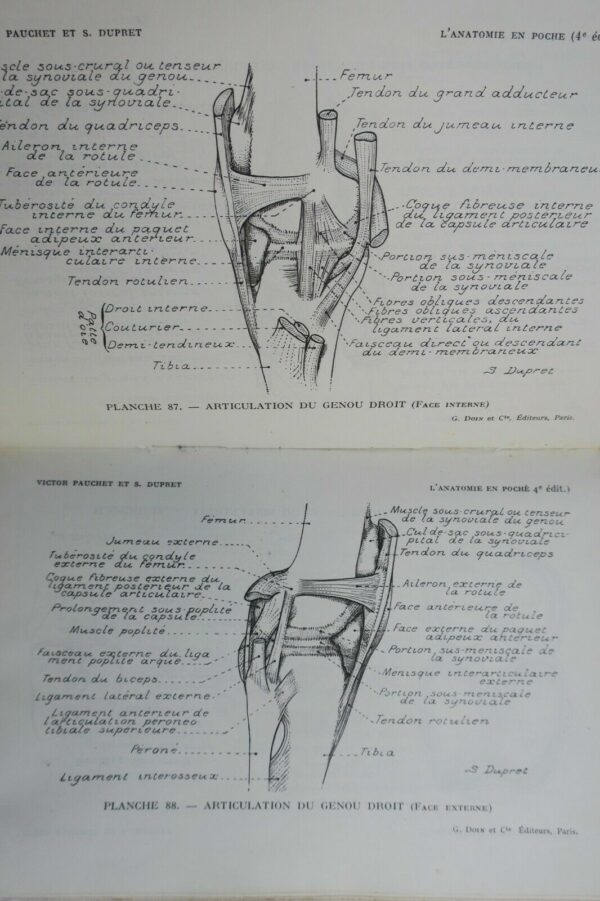 PAUCHET ET S. DUPRET
L'ANATOMIE EN POCHE (4e éd
scle sous-crural ou tenseur
la synoviale du genou
-de-sac sous-quadri-
ital de la synoviale
endon du quadriceps
Aileron interne
de la rotule
Face antérieure
de la rotule
Tubérosité du condyle
interne du femur
Face interne du paquet
adipeux antérieur
Ménisque interarti-
culaire interne
Tendon rotulien
Patte
d'oie
Droit interne
Couturier
Demi-tendineux
Tibia
Fémur
Tendon du grand adducteur
Tendon du jumeau interne
Tendon du demi-membraneu
Coque fibreuse interne
du ligament posterieur
de la capsule articulaire
Portion sus-méniscale
de la synoviale
Portion sous-méniscale
de la synoviale
Fibres obliques descendantes
Fibres obliques ascendantes
Fibres verticales, du
ligament lateral interne
Faisceau direct ou descendant
du demi-membraneux
S Dupret
PLANCHE 87. — ARTICULATION DU GENOU DROIT (FACE INTERNE)
G. DOIN et Cie, Éditeurs, Paris.
VICTOR PAUCHET ET S. DUPRET
L'ANATOMIE EN POCHE 4e édit.)
Fémur
Jumeau externe
Tubérosité du condyle
externe du femur
Coque fibreuse externe du
ligament posterieur de la
capsule articulaire
Prolongement sous-poplité
de la capsule
Muscle poplité
Faisceau externe du liga
ment poplité arqué
Tendon du biceps
Ligament latéral externe
Ligament anterieur de
l'articulation peroneo
tibiale supérieure
Péroné
Ligament interosseux
Muscle sous-crural ou tenseur
de la synoviale du genou
Cul de sac sous-quadrici-
pital de la synoviale
Tendon du quadriceps
Aileron externe de
la rotule
Face antérieure de
la rotule
Face externe du paquet
adipeux antérieur
Portion sus-méniscale de
la synoviale
Menisque interarticulaire
externe
Portion sous-meniscale
de la synoviale
Tendon rotulien
Tibia
S Dupret
PLANCHE 88. — ARTICULATION DU GENOU DROIT (FACE EXTERNE)
G. DOIN et Cie Éditeurs, Paris.